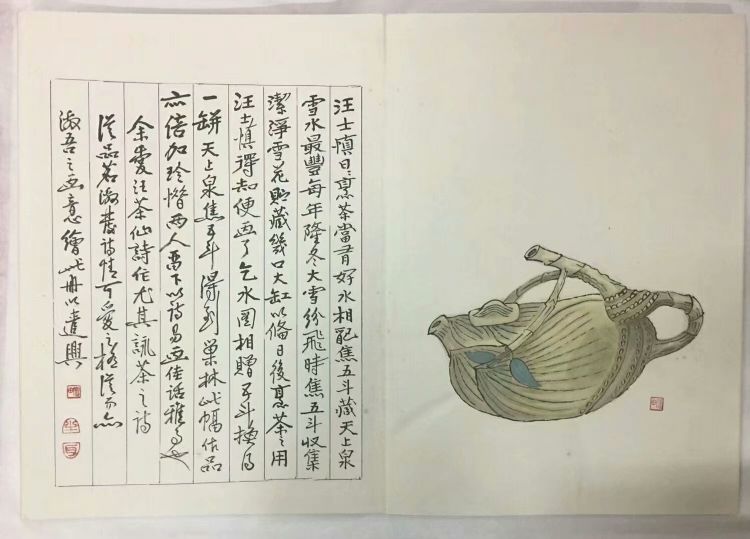 汪士慎曰烹茶當有好水相配焦五斗藏天上泉
雪水最豐每年隆冬大雪紛飛時焦五斗收集
潔淨雪花貯藏幾口大缸以備日後烹茶之用
汪士慎得知便画了乞水圖相贈五斗換得
一缾天上泉焦五斗得到巢林此幅作品
亦倍加珍惜两人留下以詩易画佳話雅事也
余愛汪茶仙詩作尤其詠茶之詩
從品茗激發詩情可愛之極從而亦
激吾之画意繪此册以遣興